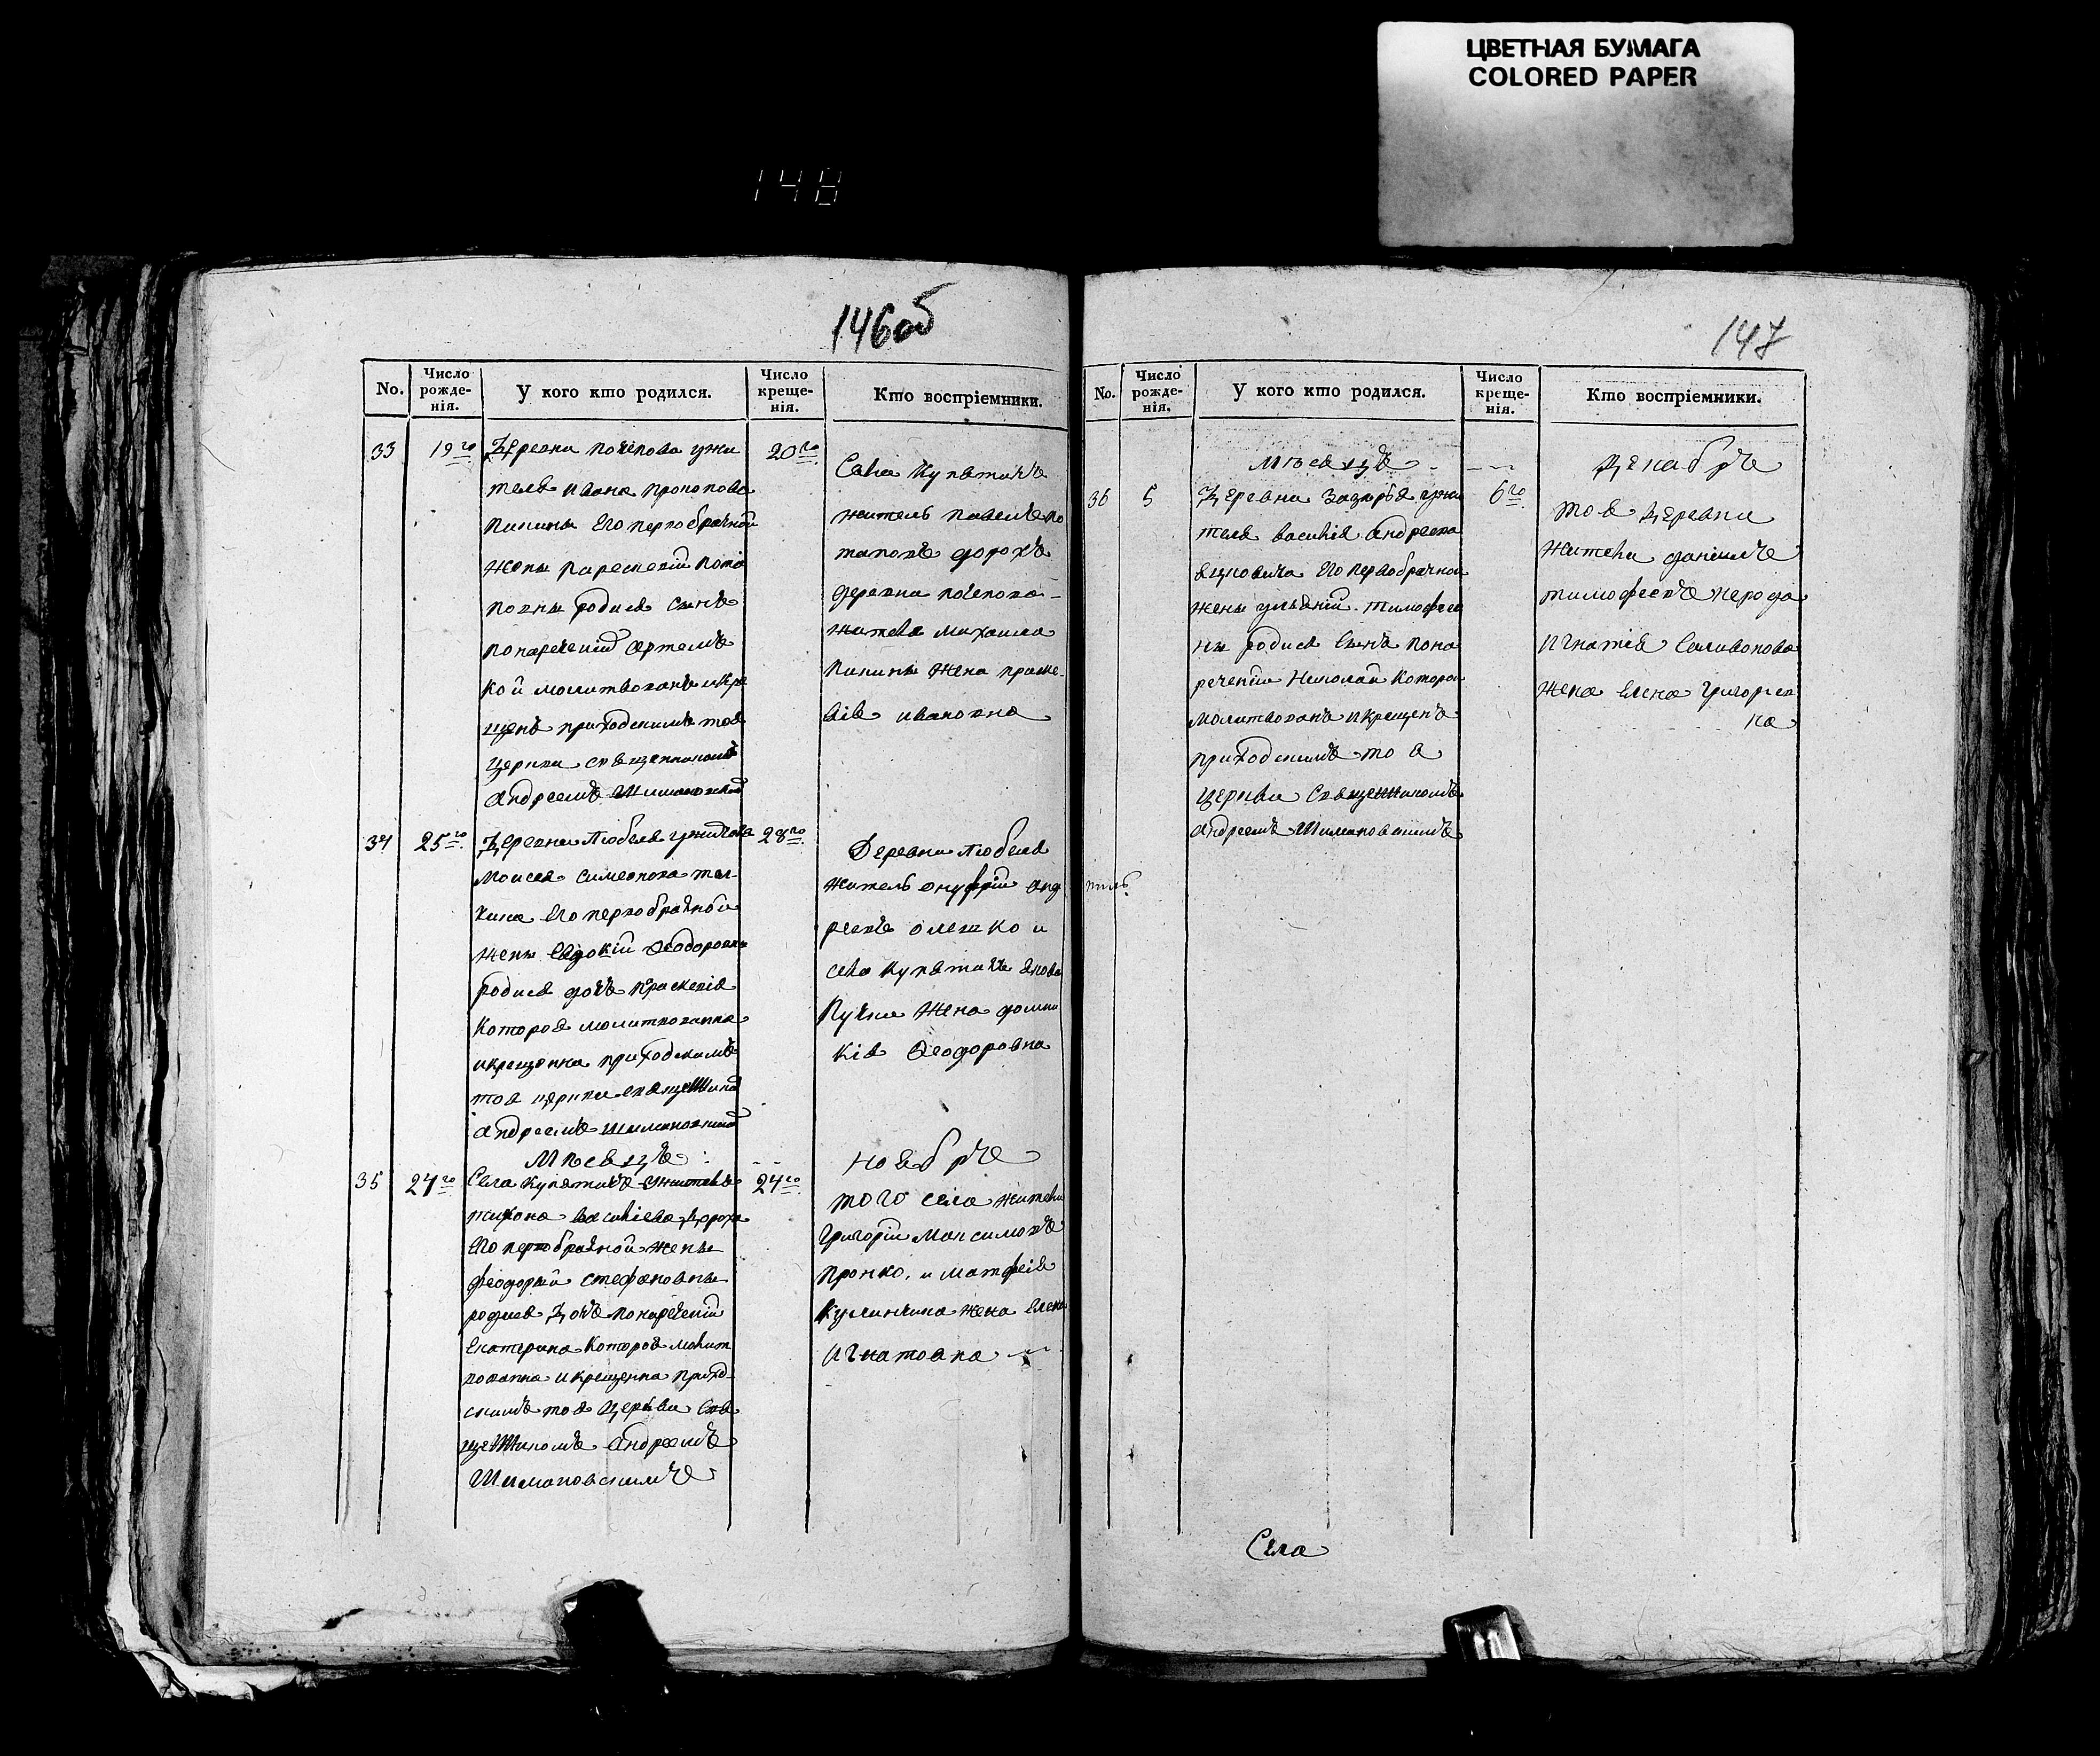 ЦВЕТНАЯ БУМАГА
COLORED PAPER
148
146об
No.
Число рожде-нія.
У кого кто родился.
Число креще-нія.
Кто воспріемники.
33
19го
Деревни почепова ужи
теля ивана прокопова
пинины его первобрачной
жены параскевіи пота
повны родися сынъ
понаречении артемъ
кой молитвованъ икре
щенъ приходскимъ тоя
церкви священникомъ
андреемъ Шимановским
20го
Села купятичъ
житель павелъ по
таповъ дорохъ
деревни почепова
жителя михаила
пинины жена праске
вія ивановна
34
25го
Деревни Любеля ужителя
моисея симеонова
его первобрачной
жены Евдокіи Ѳеодоровны
родися дочъ праскевія
которая молитвованна
икрещенна приходскимъ
тоя церкви священником
андреемъ шимановским
28го
Деревни любеля
житель онуфрій анд
реевъ олешко и
села купятичъ якова
пучки жена домни
кія Ѳеодоровна
Мѣсяцъ
ноябръ
35
24го
Села купятичъ ужителя
тихона василіева дороха
его первобрачной жены
феодоры стефановны
родися дочъ понаречении
екатерина которая молит
вованна икрещенна приход
скимъ тоя церкви свя
щенникомъ андреемъ
Шимановскимъ
24го
того села житель
григорій максимовъ
пронко, и матфея
жена елена
игнатовна
No.
Число рожде-нія.
У кого кто родился.
Число креще-нія.
Кто воспріемники.
Мѣсяцъ
декабръ
36
5
Деревни Заморья ужи
теля василія андреева
его первобрачной
жены уліяніи тимофеев
ны родися сынъ пона
речении николай которой
молитвованъ икрещенъ
приходскимъ тоя
церкви священникомъ
андреемъ Шимановскимъ
6го
тоя деревни
житель даніилъ
тимофеевъ нерода
игнатія Саливонова
жена елена григорьев
на
Села